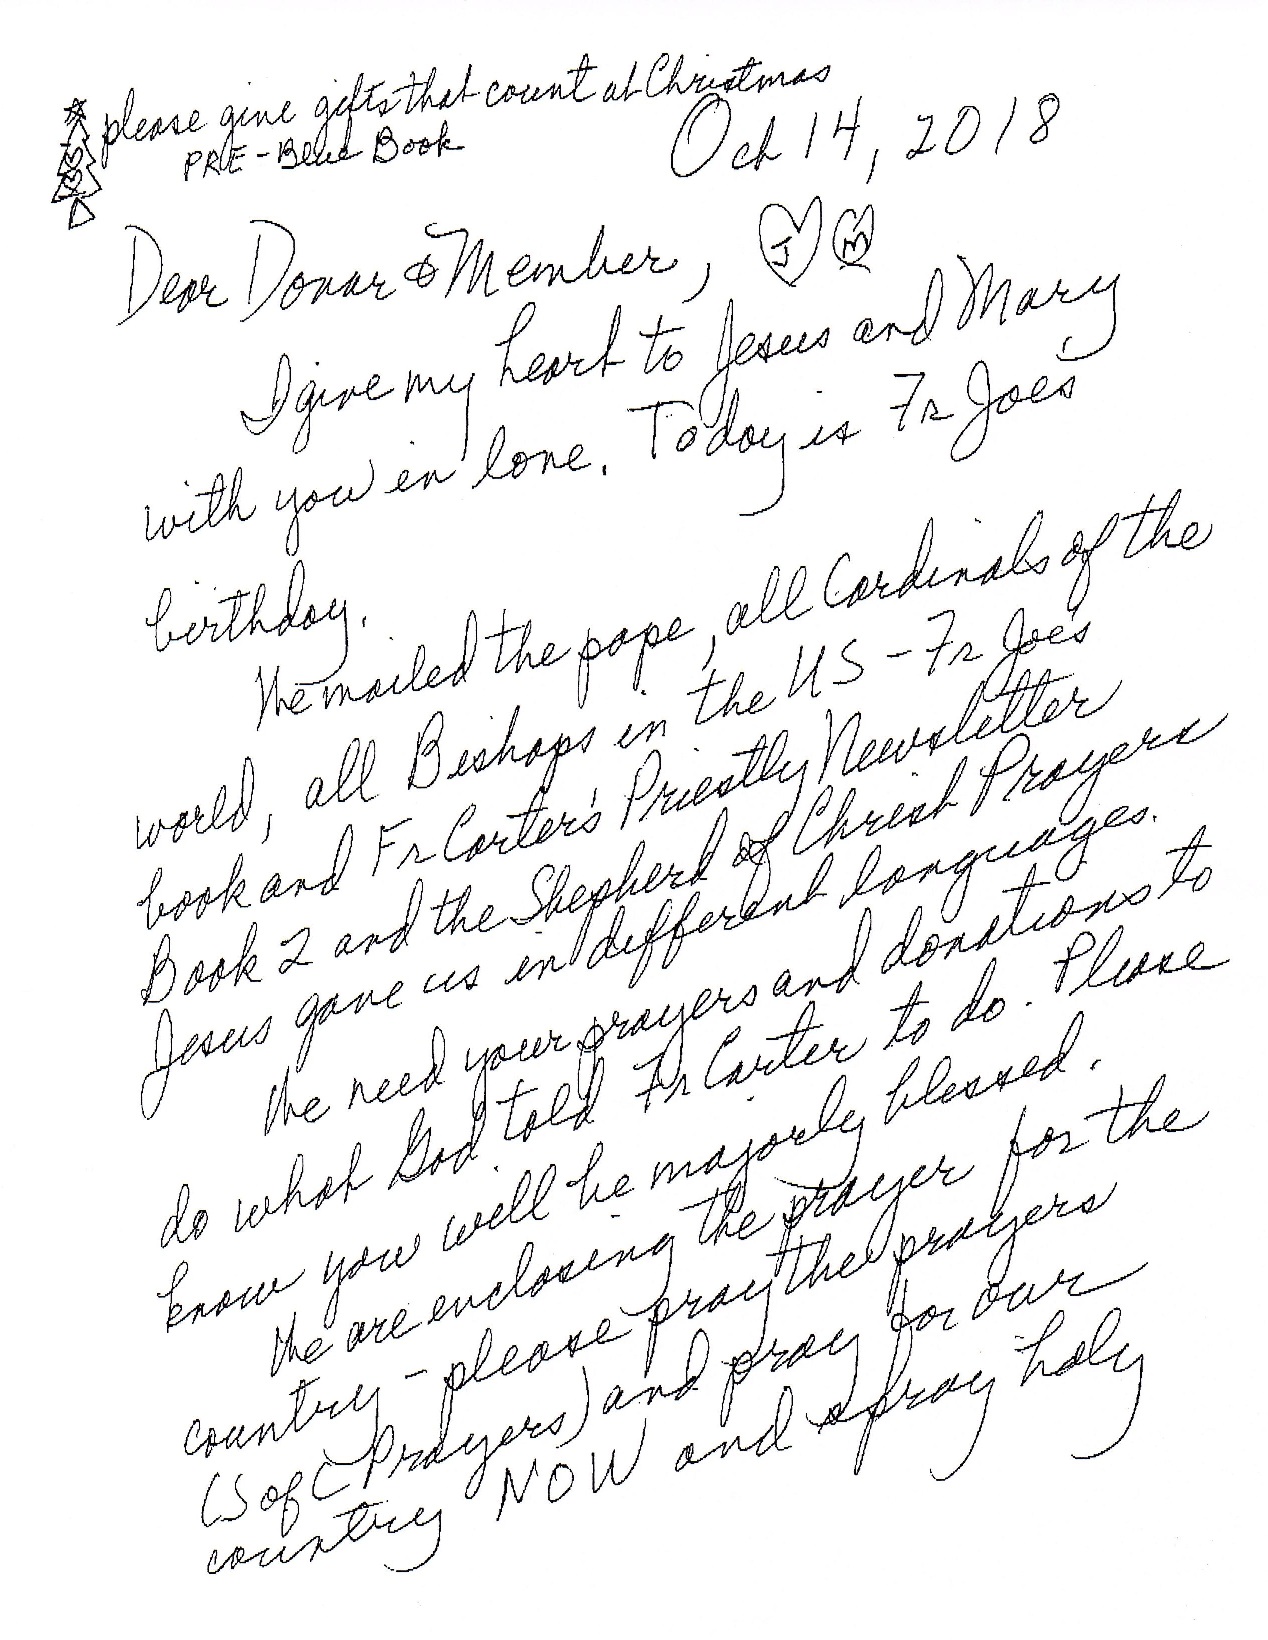 please give gifts that count at Christmas
PRE-Blue Book
Oct 14, 2018
Dear Donar & Member, J M
I give my heart to Jesus and Mary
with you in love. Today is Fr Joe's
birthday.
We mailed the pope, all Cardinals of the
world, all Bishops in the US - Fr Joe's
book and Fr Carter's Priestly Newsletter
Book 2 and the Shepherd of Christ Prayers
Jesus gave us in different languages.
We need your prayers and donations to
do what God told Fr Carter to do. Please
know you will be majorly blessed.
We are enclosing the prayer for the
country - please pray the prayers
(S of C Prayers) and pray for our
country NOW and spray holy